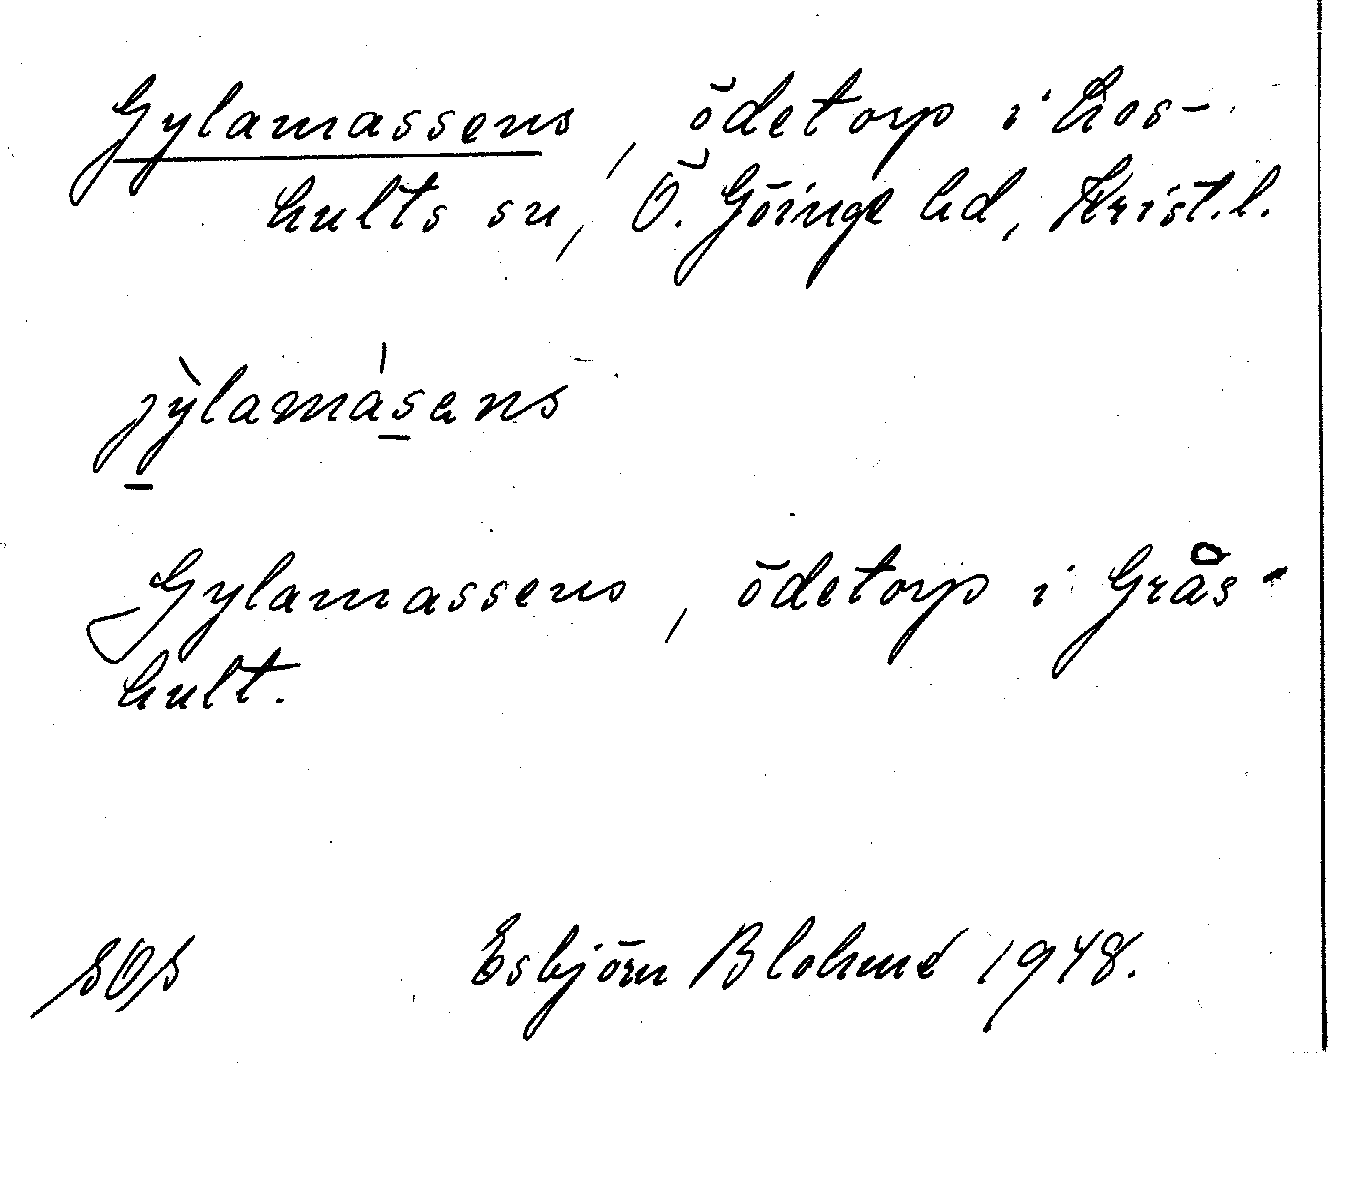 Gylamassens, ödetorp i Los-
hults sn, Ö. Göinge hd, Krist.l.
jỳlamásens
Gylamassens, ödetorp i Grås-
hult.
SOS Esbjörn Blohmé 1948.